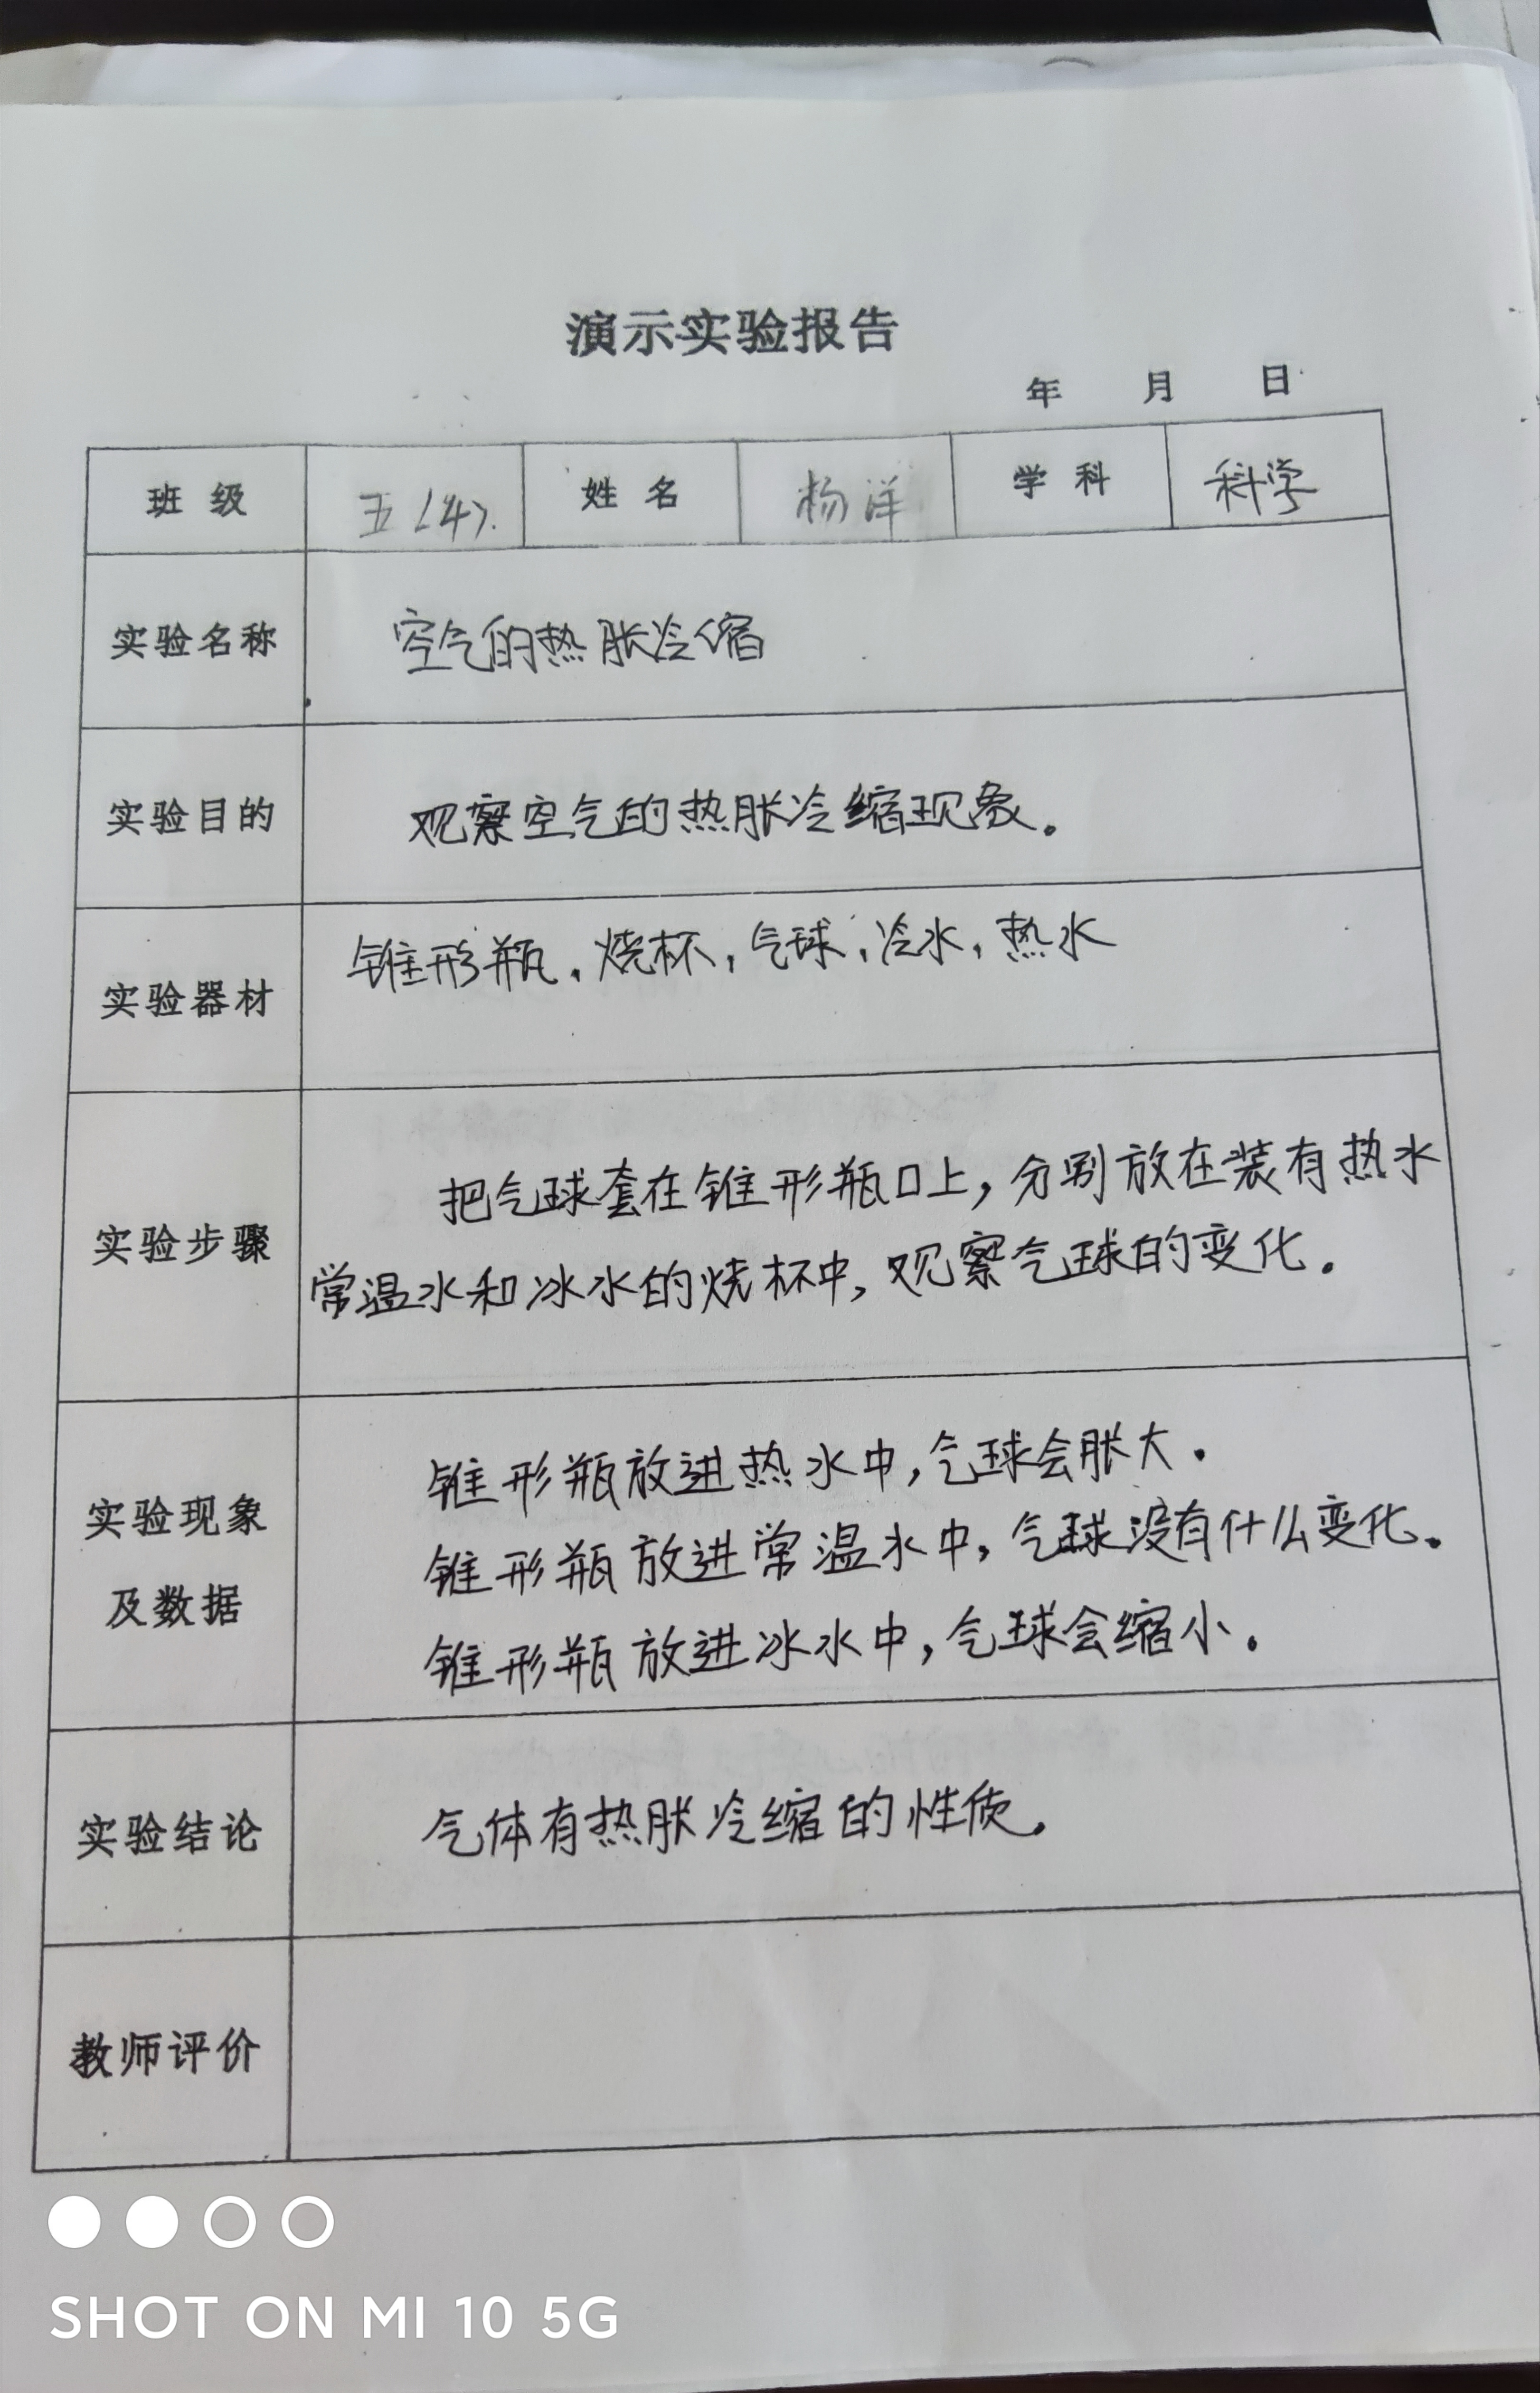 演示实验报告
年 月 日
班 级 五(4). 姓 名 杨洋 学 科 科学
实验名称 空气的热胀冷缩
实验目的 观察空气的热胀冷缩现象。
实验器材 锥形瓶,烧杯,气球,冷水,热水
实验步骤 把气球套在锥形瓶口上,分别放在装有热水
常温水和冰水的烧杯中,观察气球的变化。
实验现象
及数据
锥形瓶放进热水中,气球会胀大.
锥形瓶放进常温水中,气球没有什么变化.
锥形瓶放进冰水中,气球会缩小.
实验结论 气体有热胀冷缩的性质.
教师评价
SHOT ON MI 10 5G